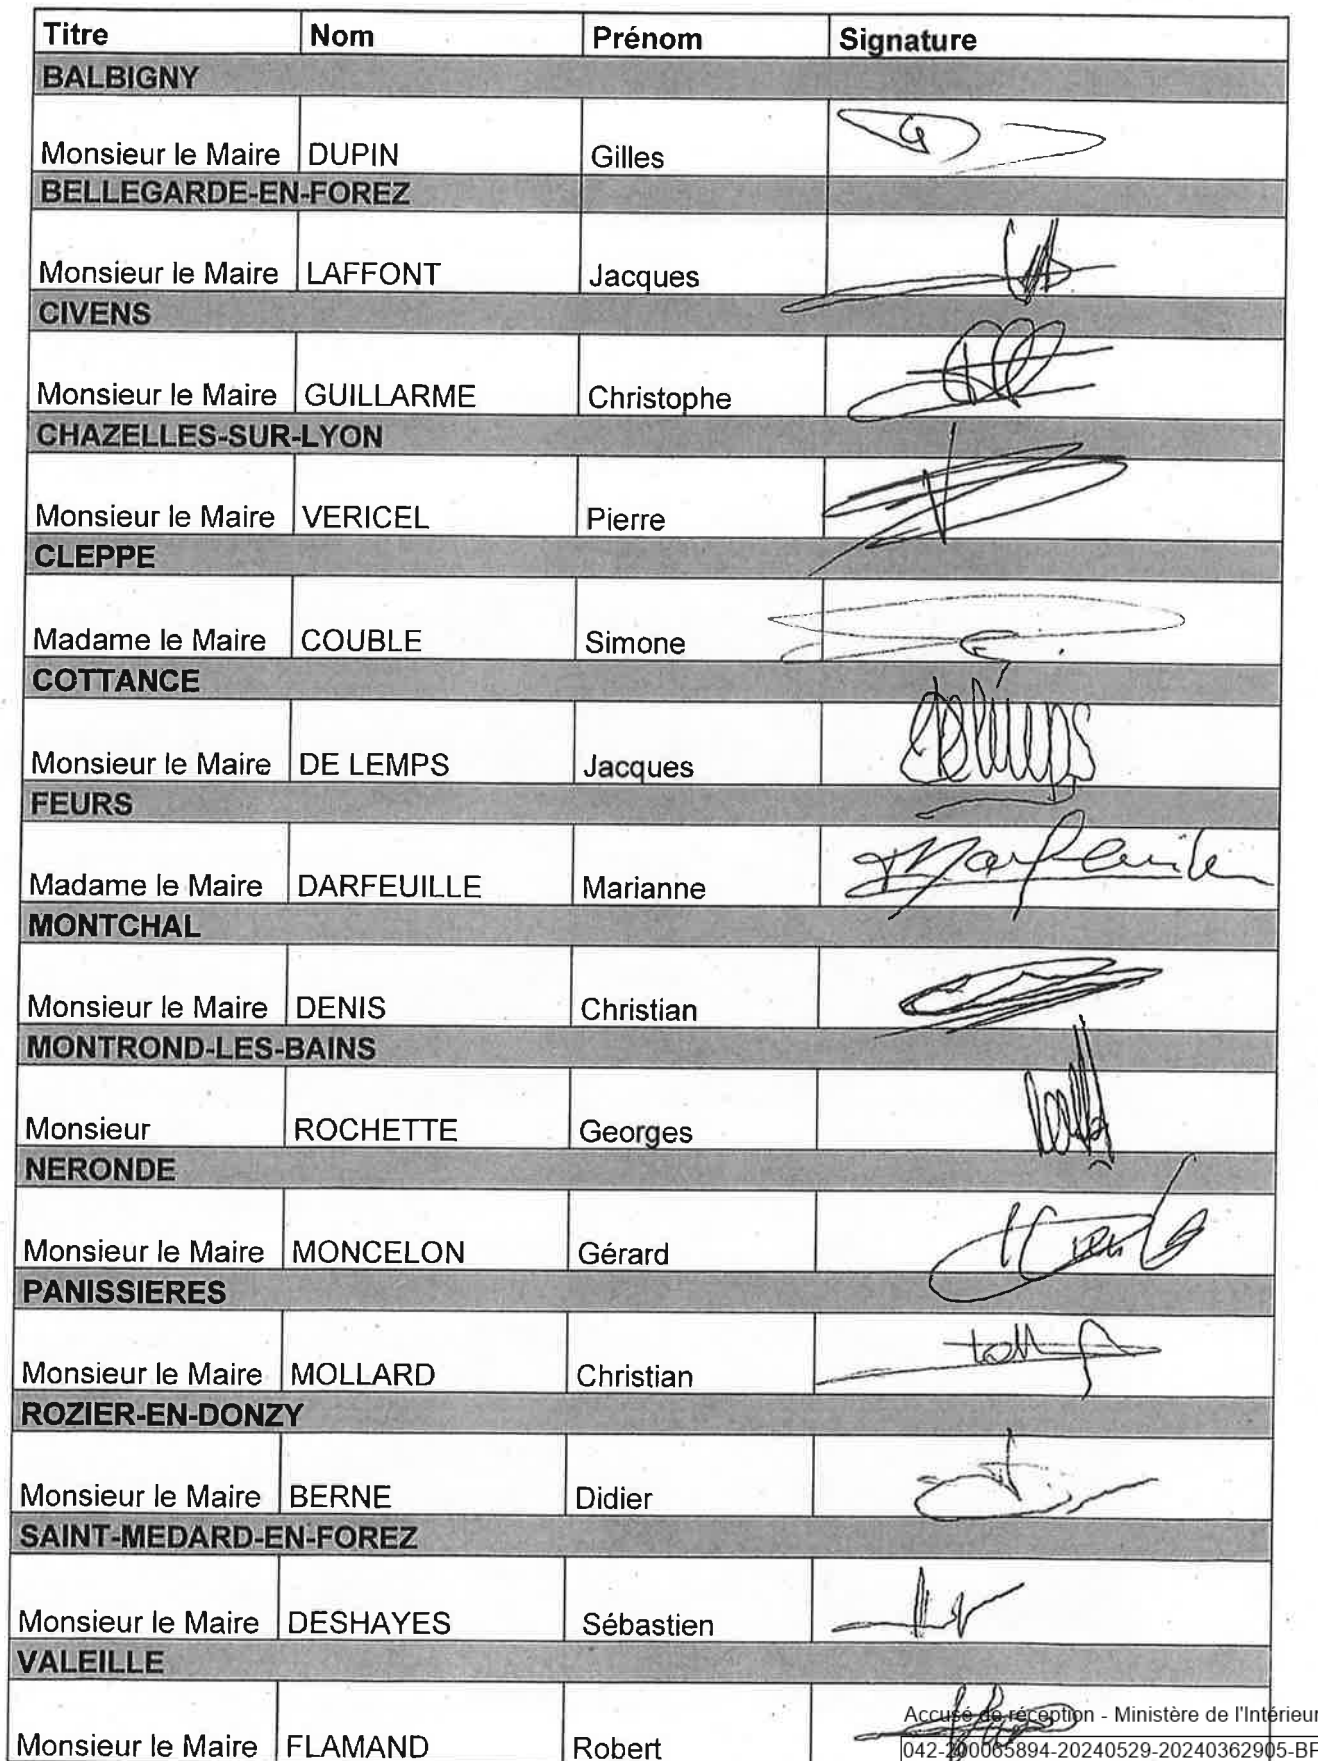 Titre Nom Prénom Signature
BALBIGNY
Monsieur le Maire DUPIN Gilles
BELLEGARDE-EN-FOREZ
Monsieur le Maire LAFFONT Jacques
CIVENS
Monsieur le Maire GUILLARME Christophe
CHAZELLES-SUR-LYON
Monsieur le Maire VERICEL Pierre
CLEPPE
Madame le Maire COUBLE Simone
COTTANCE
Monsieur le Maire DE LEMPS Jacques
FEURS
Madame le Maire DARFEUILLE Marianne
MONTCHAL
Monsieur le Maire DENIS Christian
MONTROND-LES-BAINS
Monsieur ROCHETTE Georges
NERONDE
Monsieur le Maire MONCELON Gérard
PANISSIERES
Monsieur le Maire MOLLARD Christian
ROZIER-EN-DONZY
Monsieur le Maire BERNE Didier
SAINT-MEDARD-EN-FOREZ
Monsieur le Maire DESHAYES Sébastien
VALEILLE
Monsieur le Maire FLAMAND Robert
Accusé de réception - Ministère de l'Intérieur
042-200065894-20240529-20240362905-BF